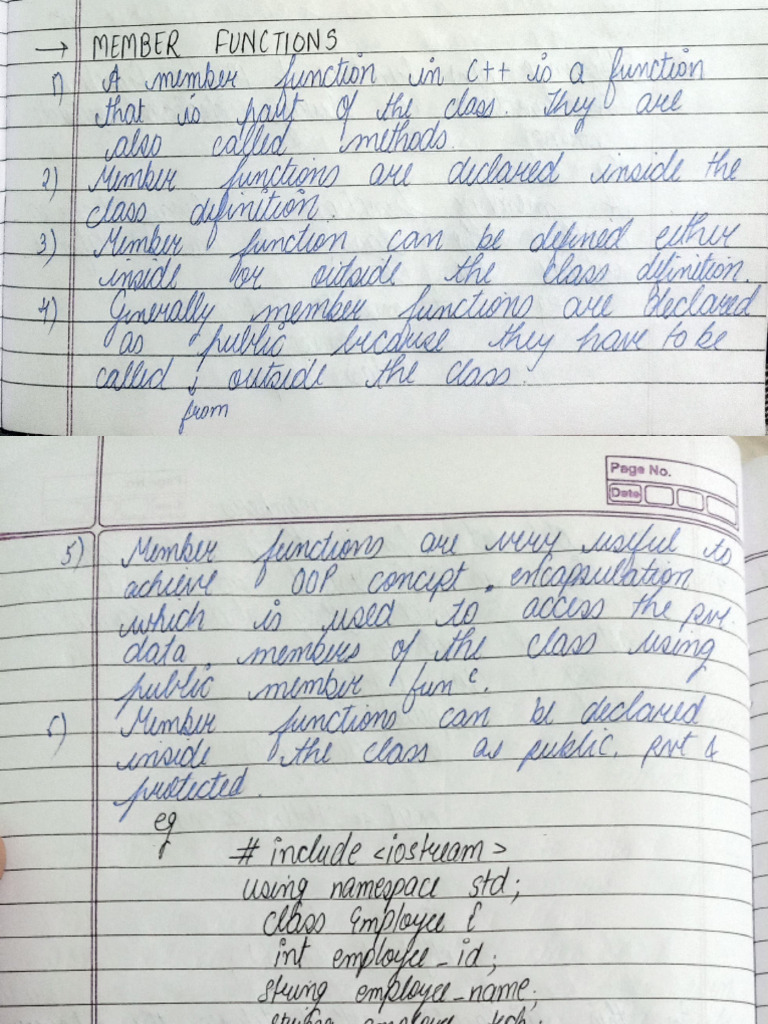 → MEMBER FUNCTIONS
1) A member function in C++ is a function
that is part of the class. They are
also called methods.
2) Member functions are declared inside the
class definition.
3) Member function can be defined either
inside or outside the class definition.
4) Generally member functions are declared
as public because they have to be
called outside the class.
from
Page No.
Date
5) Member functions are very useful to
achieve OOP concept encapsulation
which is used to access the prvt.
data members of the class using
public member func.
6) Member functions can be declared
inside the class as public, prvt &
protected.
eg
# include <iostream>
using namespace std;
class Employee {
int employee_id;
string employee_name;
string employee